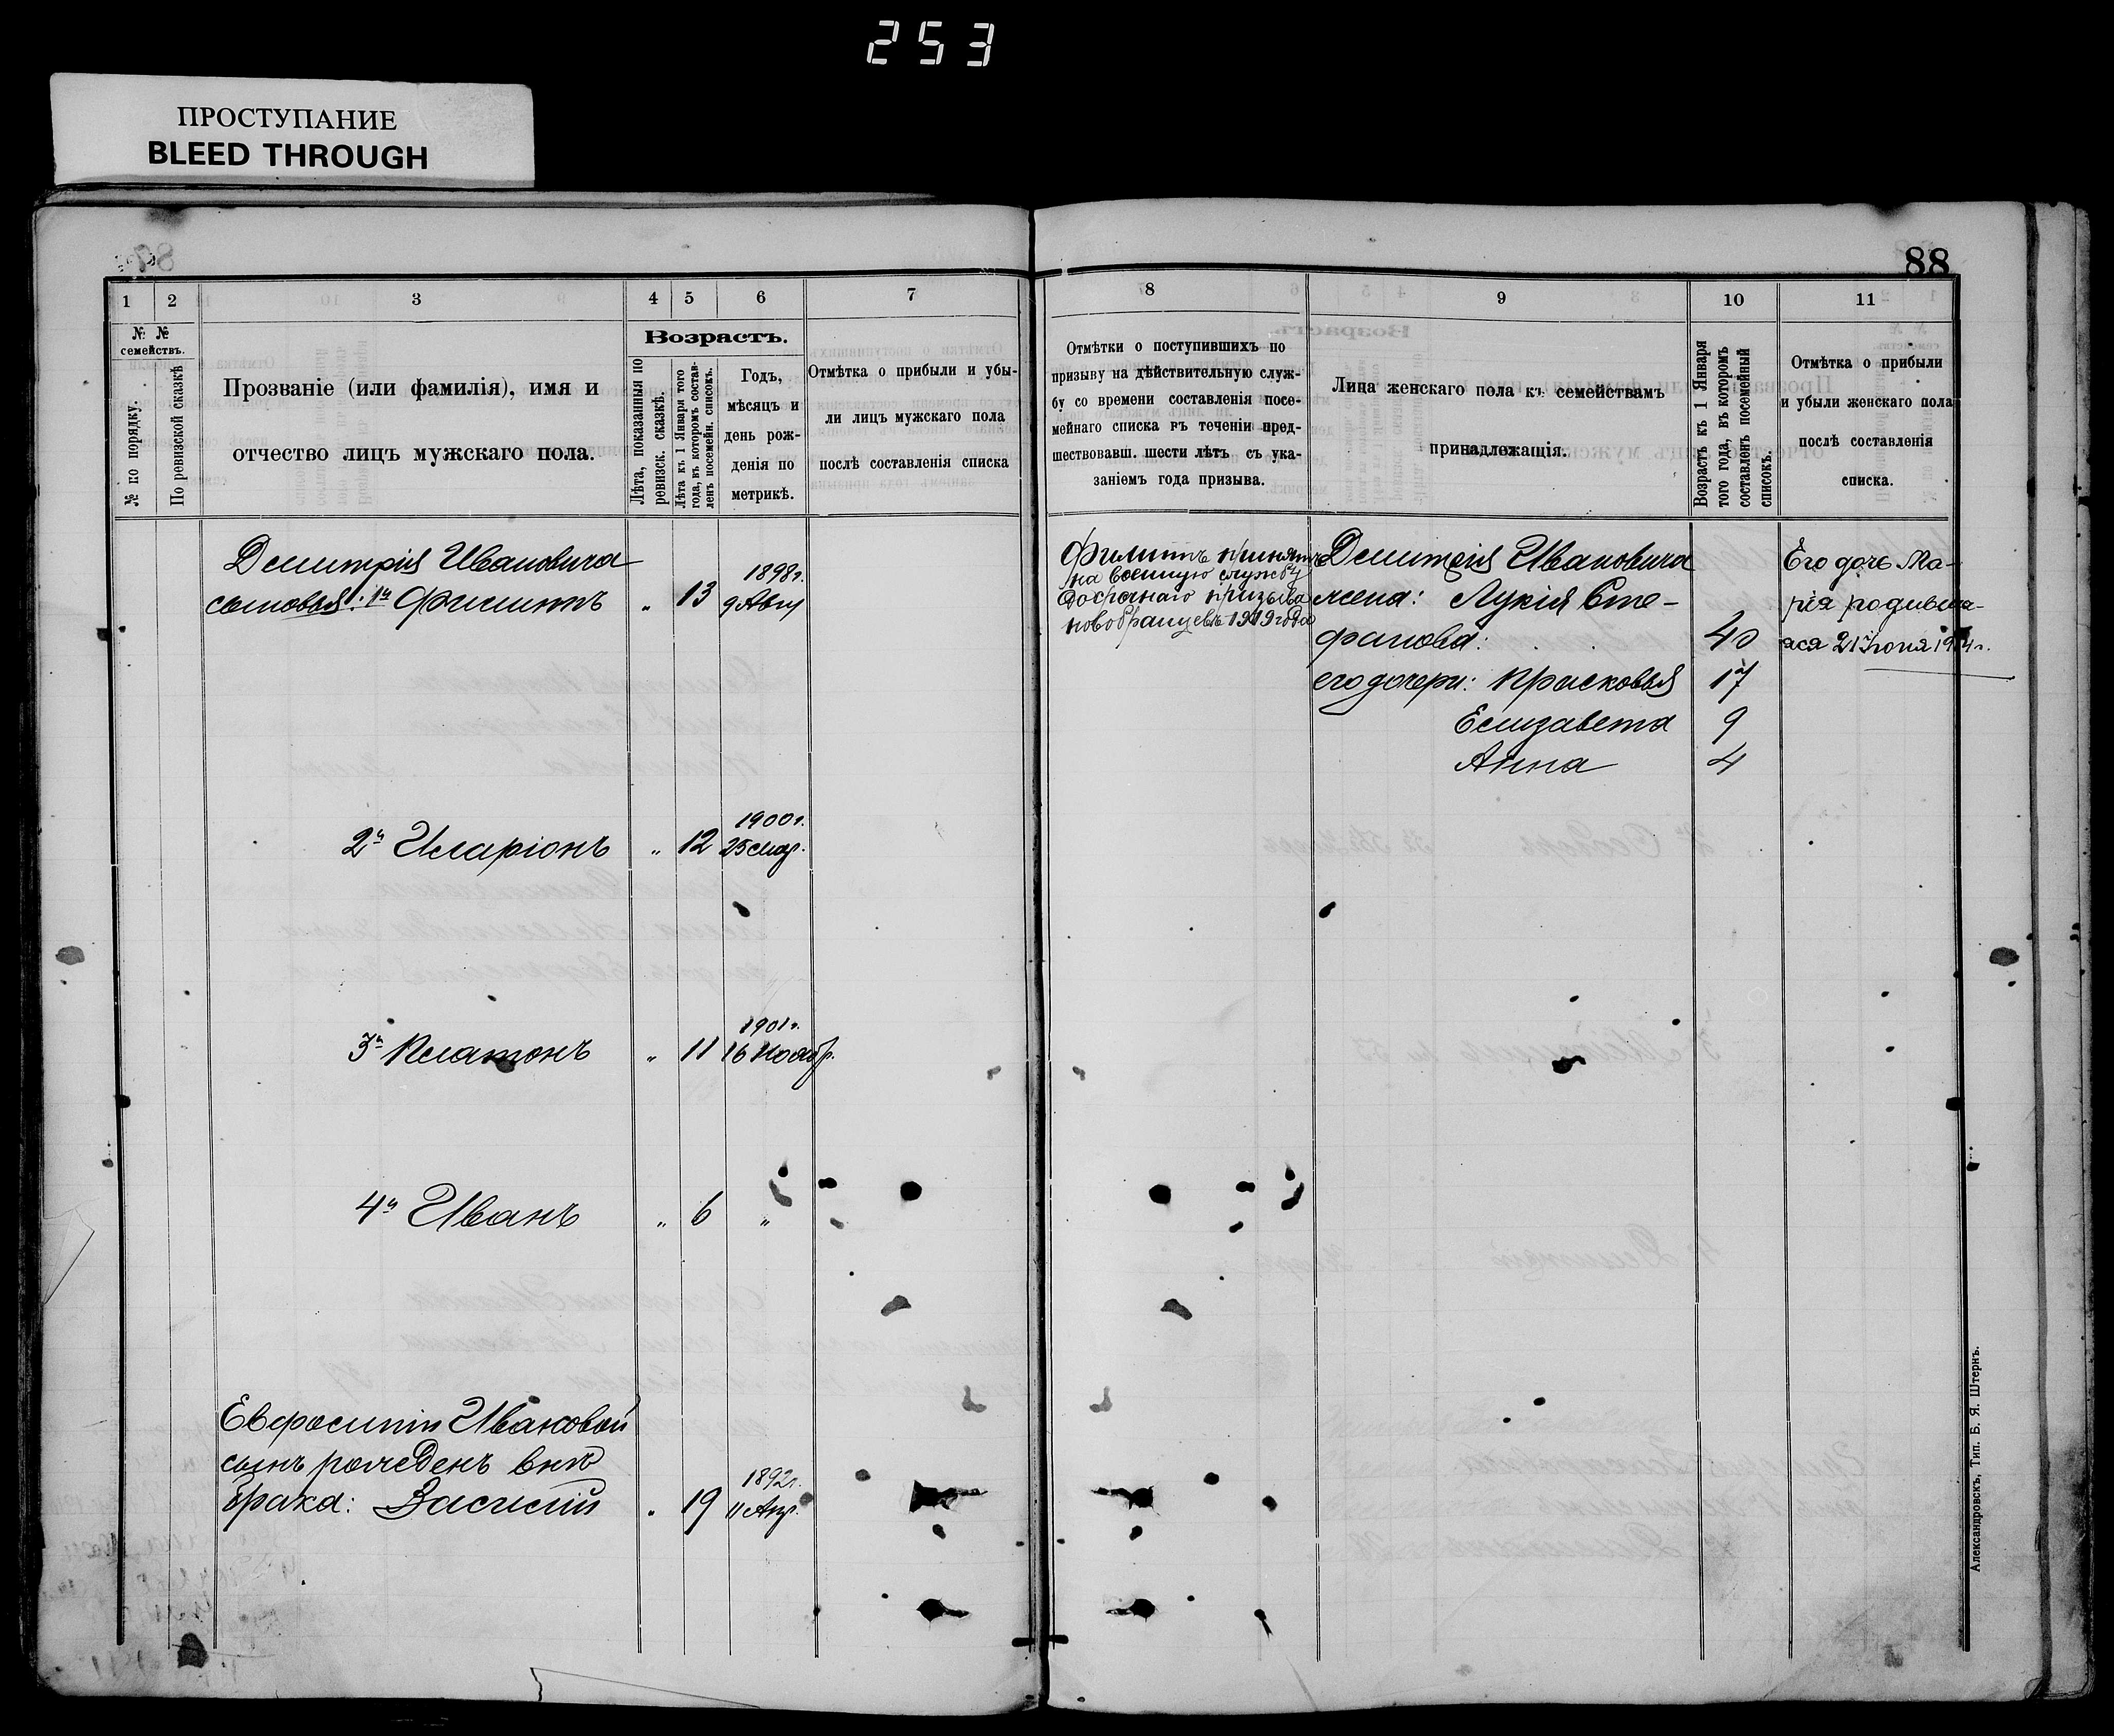 253
ПРОСТУПАНИЕ
BLEED THROUGH
88
1 2 3 4 5 6 7
№ № семействъ.
№ по порядку.
По ревизской сказкѣ
Прозваніе (или фамилія), имя и
отчество лицъ мужскаго пола.
Возрастъ.
Лѣта, показанныя по
ревизск. сказкѣ.
Лѣта къ 1 Января того
года, въ которомъ состав-
ленъ посемейн. списокъ.
Годъ,
мѣсяцъ и
день рож-
денія по
метрикѣ.
Отмѣтка о прибыли и убы-
ли лицъ мужскаго пола
послѣ составленія списка
Демитрія Ивановича
сыновья: 1й Филиппъ „ 13 1898г.
9 Авгу
2й Иларіонъ „ 12 1900г.
25 мар.
3й Платонъ „ 11 1901г.
16 Ноябр.
4й Иванъ „ 6 „
Евфосиніи Ивановой
сынъ рожеденъ внѣ
брака: Василій „ 19 1892г.
11 Апр.
8 9 10 11
Отмѣтки о поступившихъ по
призыву на дѣйствительную служ-
бу со времени составленія посе-
мейнаго списка въ теченіи пред-
шествовавш. шести лѣтъ съ ука-
заніемъ года призыва.
Лица женскаго пола къ семействамъ
принадлежащія.
Возрастъ къ 1 Января
того года, въ которомъ
составленъ посемейный
списокъ.
Отмѣтка о прибыли
и убыли женскаго пола
послѣ составленія
списка.
Филиппъ принятъ
на военную службу
досрочнаго призыва
новобранцевъ 1919 года
Демитрія Ивановича
жена: Лукія Сте-
фанова: 40
его дочери: Прасковья 17
Елизавета 9
Анна 4
Его дочь Ма-
рія родивша-
яся 21 Іюня 1914г.
Александровскъ, Тип. Б. Я. Штернъ.